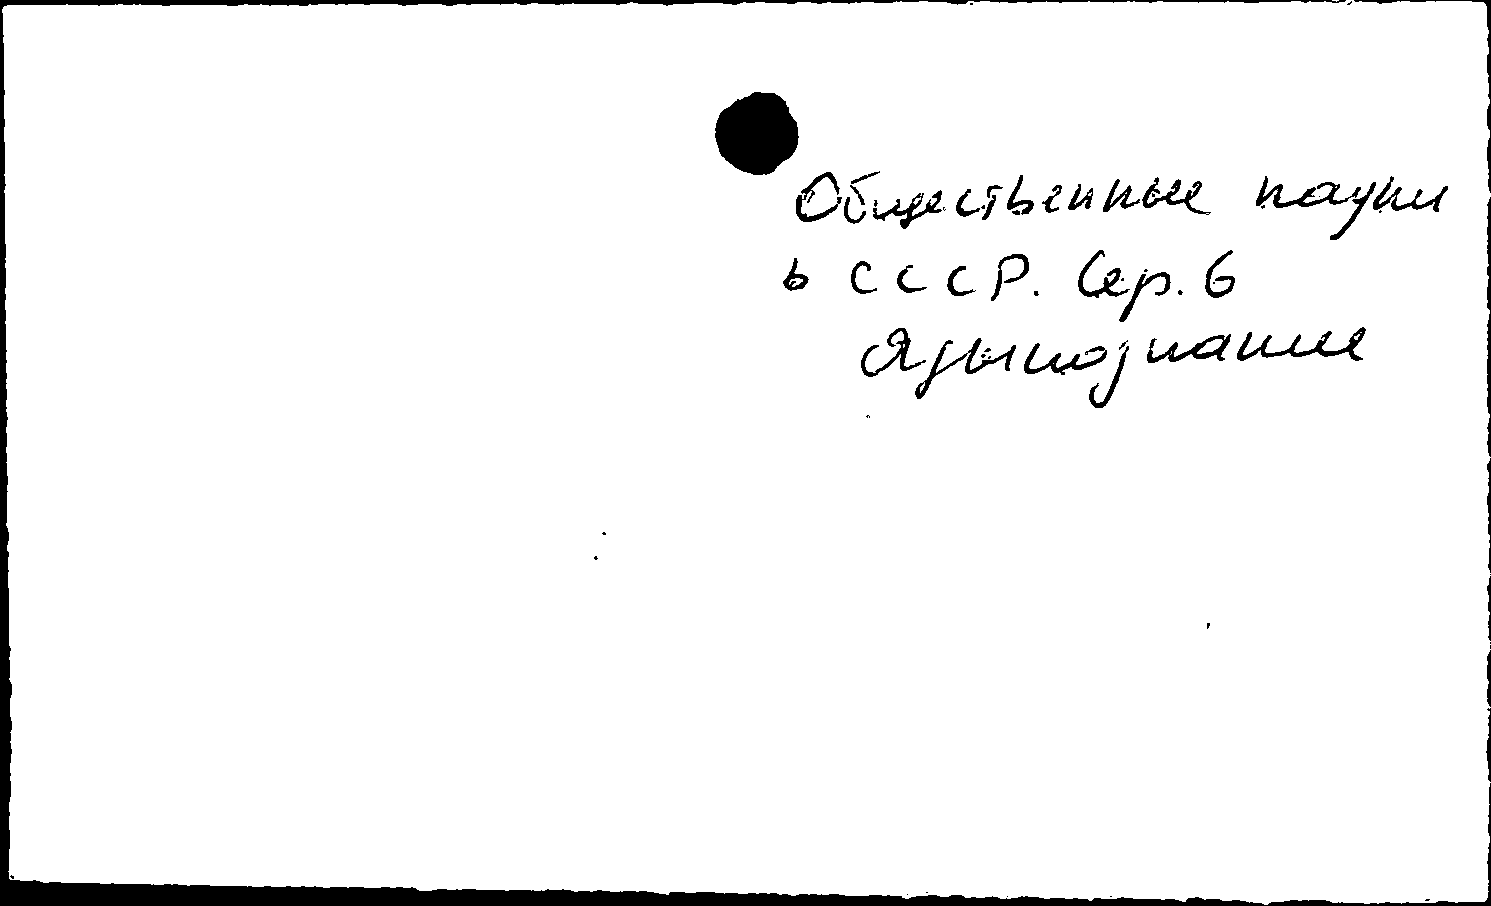 Общественные науки
в СССР. Сер. 6
Языкознание